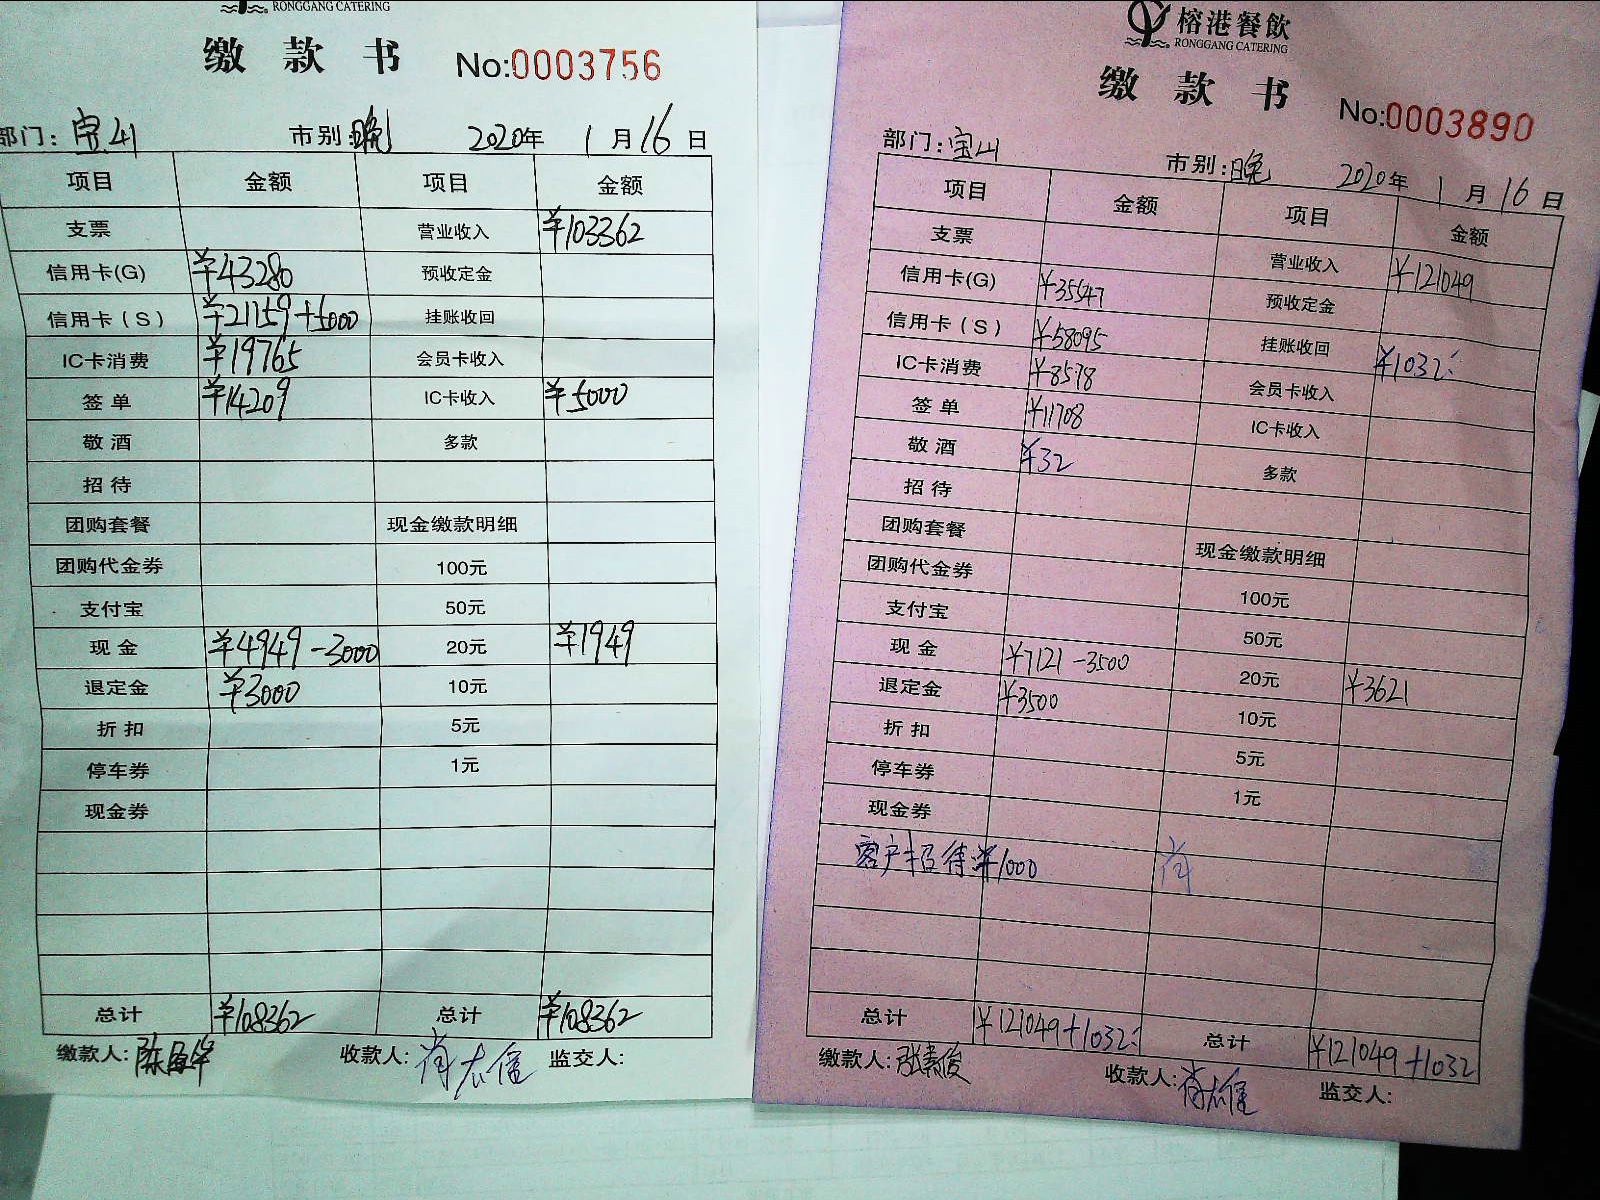 RONGGANG CATERING
缴款书 No:0003756
部门:宝山 市别:晚 2020年1月16日
项目 金额 项目 金额
支票 营业收入 ¥103362
信用卡(G) ¥43280 预收定金
信用卡(S) ¥21159+5000 挂账收回
IC卡消费 ¥19765 会员卡收入
签单 ¥14209 IC卡收入 ¥5000
敬酒 多款
招待
团购套餐 现金缴款明细
团购代金券 100元
支付宝 50元
现金 ¥4949-3000 20元 ¥1949
退定金 ¥3000 10元
折扣 5元
停车券 1元
现金券
总计 ¥108362 总计 ¥108362
缴款人: 收款人: 监交人:
榕港餐飲
RONGGANG CATERING
缴款书 No:0003890
部门:宝山 市别:晚 2020年1月16日
项目 金额 项目 金额
支票 营业收入 ¥121049
信用卡(G) ¥35547 预收定金
信用卡(S) ¥58095 挂账收回 ¥1032
IC卡消费 ¥8578 会员卡收入
签单 ¥11708 IC卡收入
敬酒 ¥32 多款
招待
团购套餐 现金缴款明细
团购代金券 100元
支付宝 50元
现金 ¥7121-3500 20元 ¥3621
退定金 ¥3500 10元
折扣 5元
停车券 1元
现金券
客户招待 ¥1000 肖
总计 ¥121049+1032 总计 ¥121049+1032
缴款人:张素俊 收款人: 监交人: